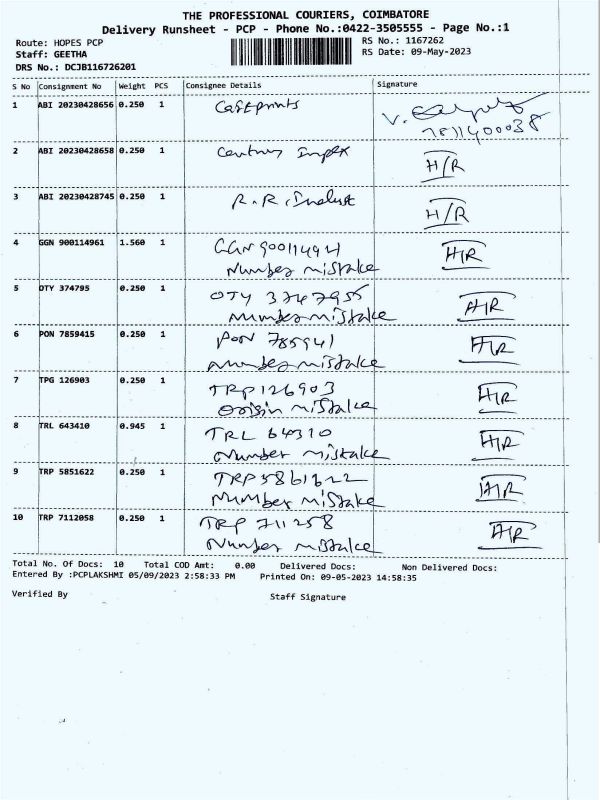 THE PROFESSIONAL COURIERS, COIMBATORE
Delivery Runsheet - PCP - Phone No.:0422-3505555 - Page No.:1
Route: HOPES PCP
Staff: GEETHA
DRS No.: DCJB116726201
RS No.: 1167262
RS Date: 09-May-2023
S No Consignment No Weight PCS Consignee Details Signature
1 ABI 20230428656 0.250 1 Castprints
7811400038
2 ABI 20230428658 0.250 1 Century Impex H/R
3 ABI 20230428745 0.250 1 R.R. H/R
4 GGN 900114961 1.560 1 GGN 900114941 H/R
Number mistake
5 OTY 374795 0.250 1 OTY 3747955 H/R
Number mistake
6 PON 7859415 0.250 1 PON 785941 H/R
Number mistake
7 TPG 126903 0.250 1 TRP 126903 H/R
Origin mistake
8 TRL 643410 0.945 1 TRL 64310 H/R
Number mistake
9 TRP 5851622 0.250 1 TRP 5861622 H/R
Number mistake
10 TRP 7112058 0.250 1 TRP 711258 H/R
Number mistake
Total No. Of Docs: 10 Total COD Amt: 0.00 Delivered Docs: Non Delivered Docs:
Entered By :PCPLAKSHMI 05/09/2023 2:58:33 PM Printed On: 09-05-2023 14:58:35
Verified By Staff Signature